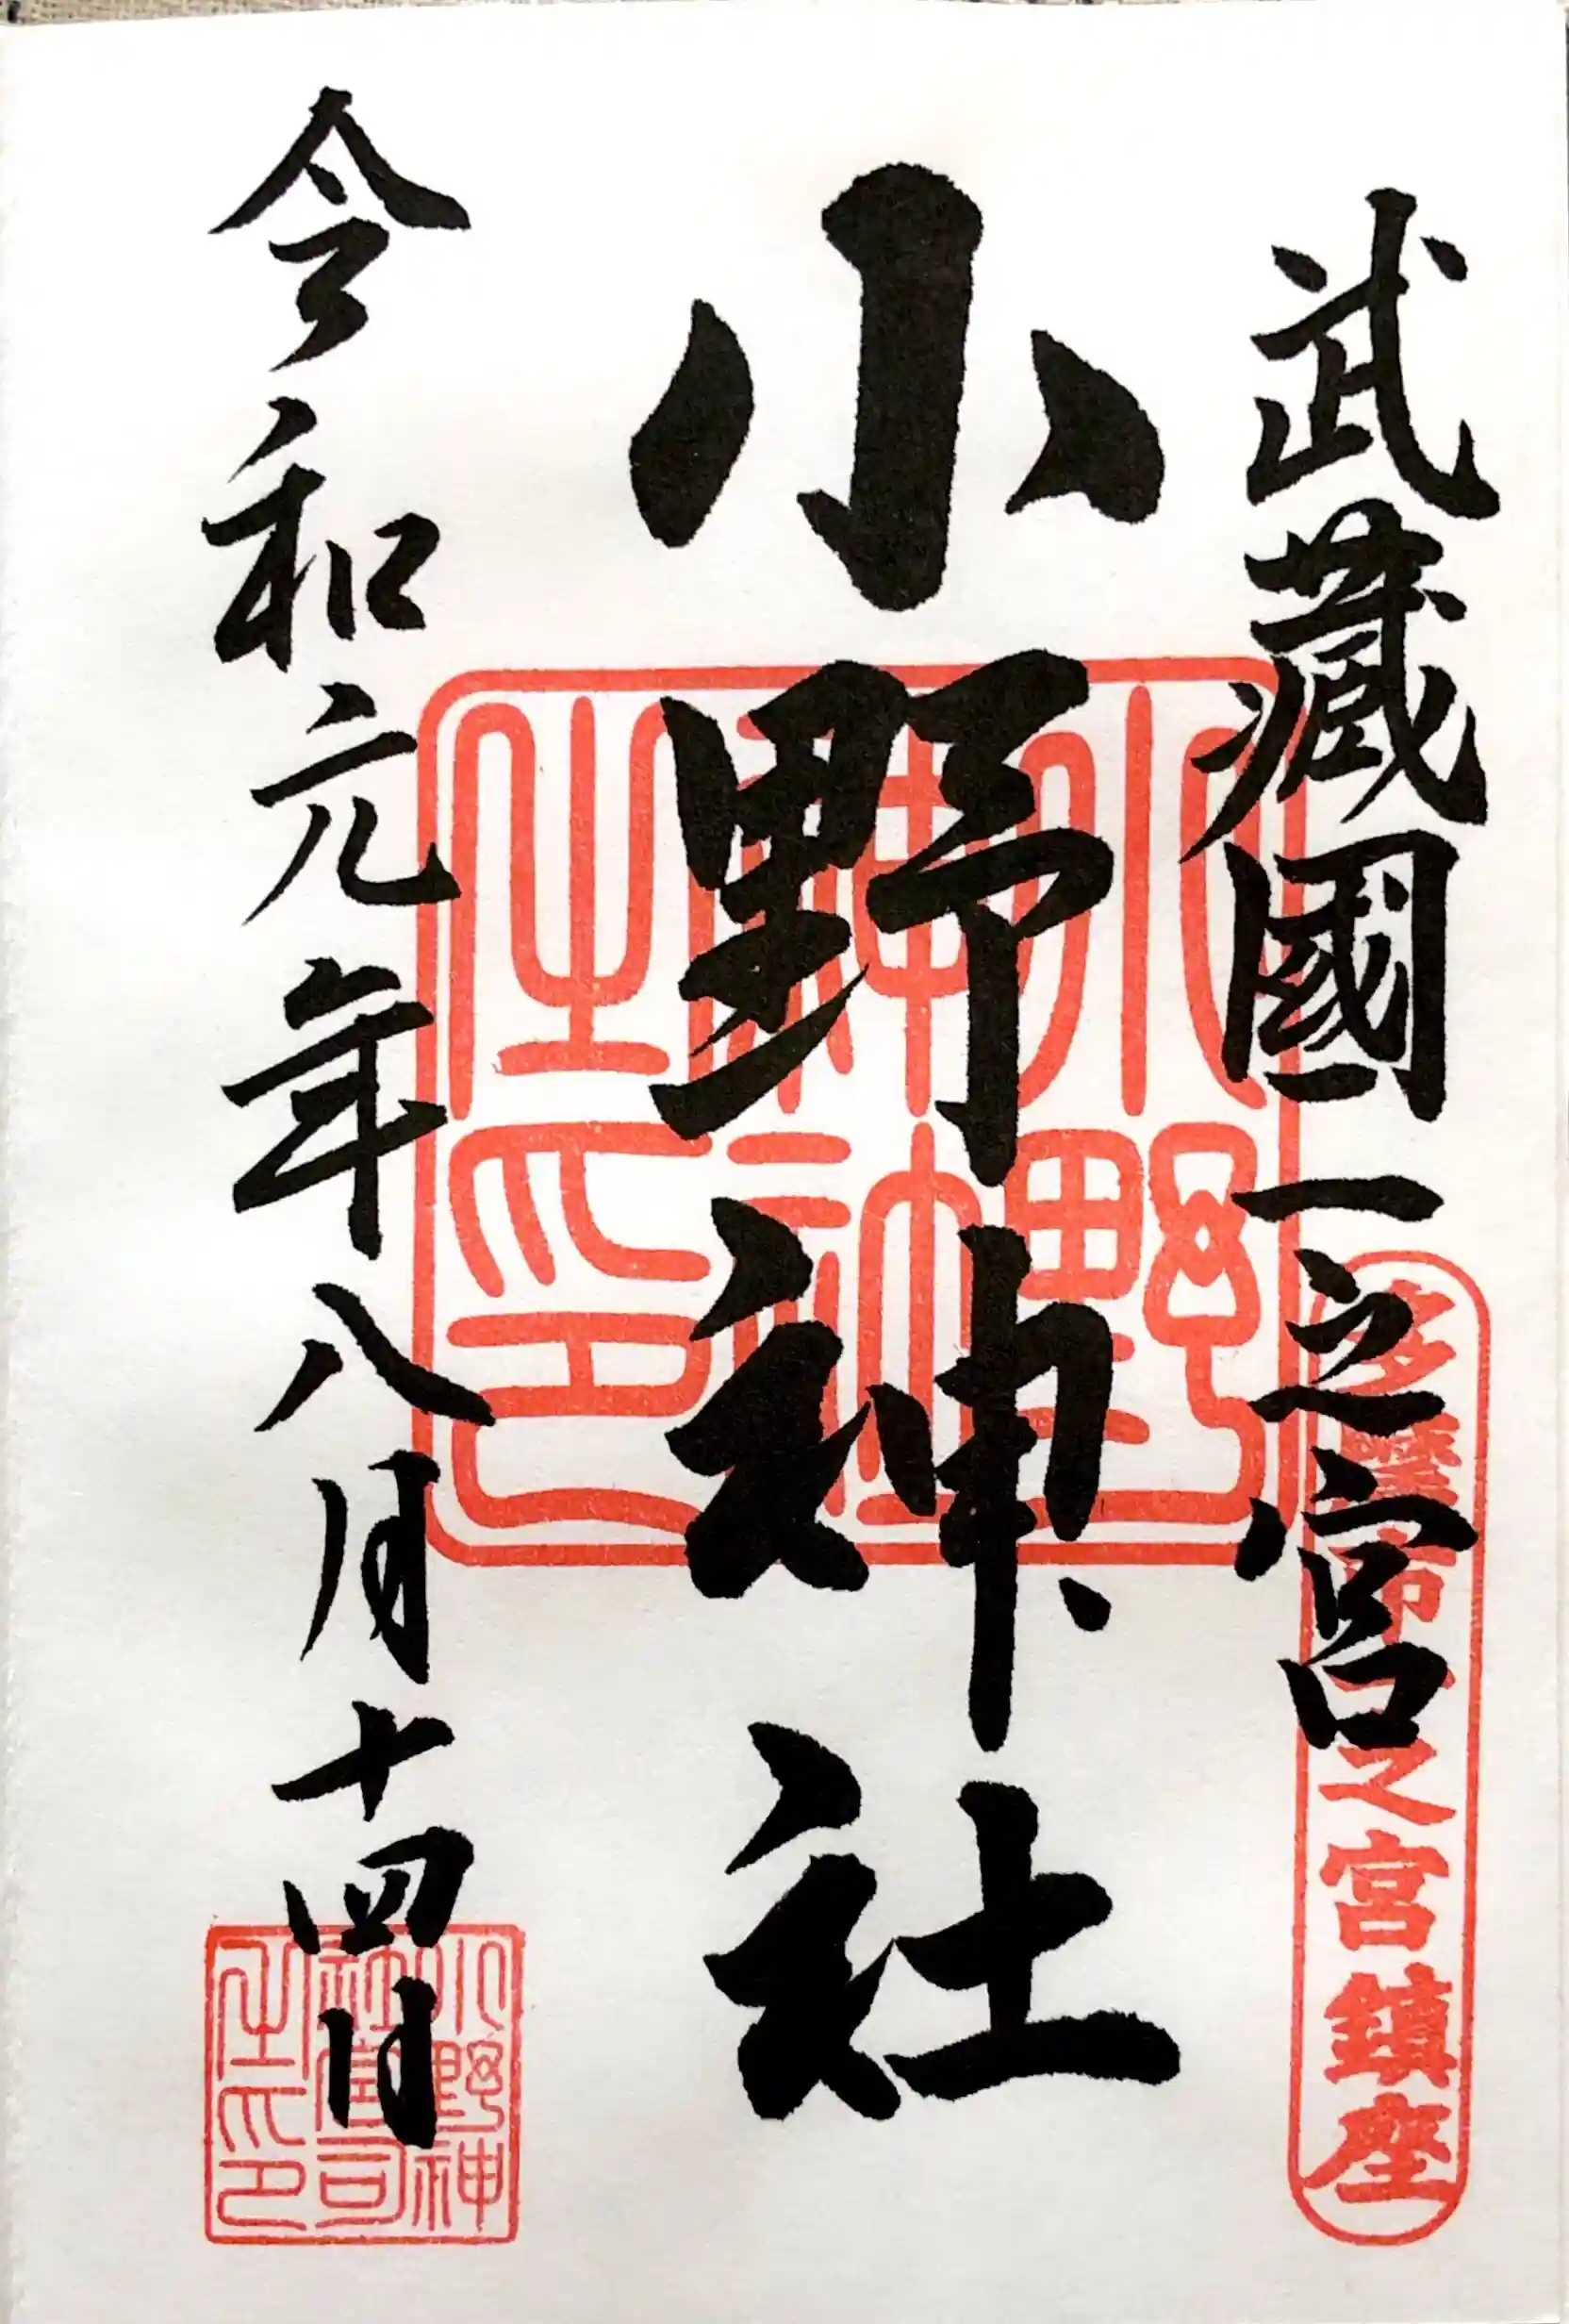 武藏國一之宮
多摩市一之宮鎮座
小野神社
小野神社之印
令和元年八月十四日
小野神社宮司之印